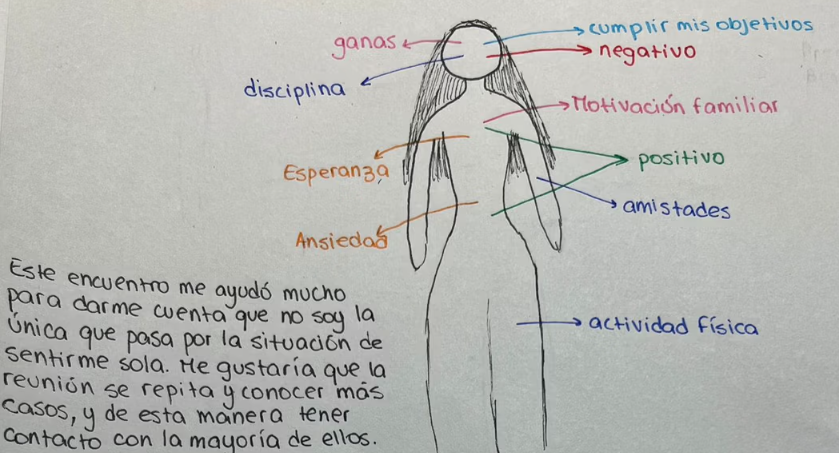 cumplir mis objetivos
ganas
negativo
disciplina
Motivación familiar
positivo
Esperanza
amistades
Ansiedad
actividad física
Este encuentro me ayudó mucho
para darme cuenta que no soy la
única que pasa por la situación de
sentirme sola. Me gustaría que la
reunión se repita y conocer más
casos, y de esta manera tener
contacto con la mayoría de ellos.